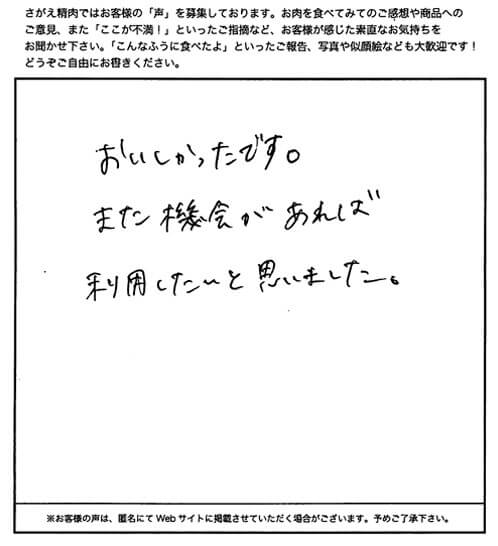 さがえ精肉ではお客様の「声」を募集しております。お肉を食べてみてのご感想や商品への
ご意見、また「ここが不満！」といったご指摘など、お客様が感じた素直なお気持ちを
お聞かせ下さい。「こんなふうに食べたよ」といったご報告、写真や似顔絵なども大歓迎です！
どうぞご自由にお書きください。
おいしかったです。
また機会があれば
利用したいと思いました。
※お客様の声は、匿名にてWebサイトに掲載させていただく場合がございます。予めご了承下さい。